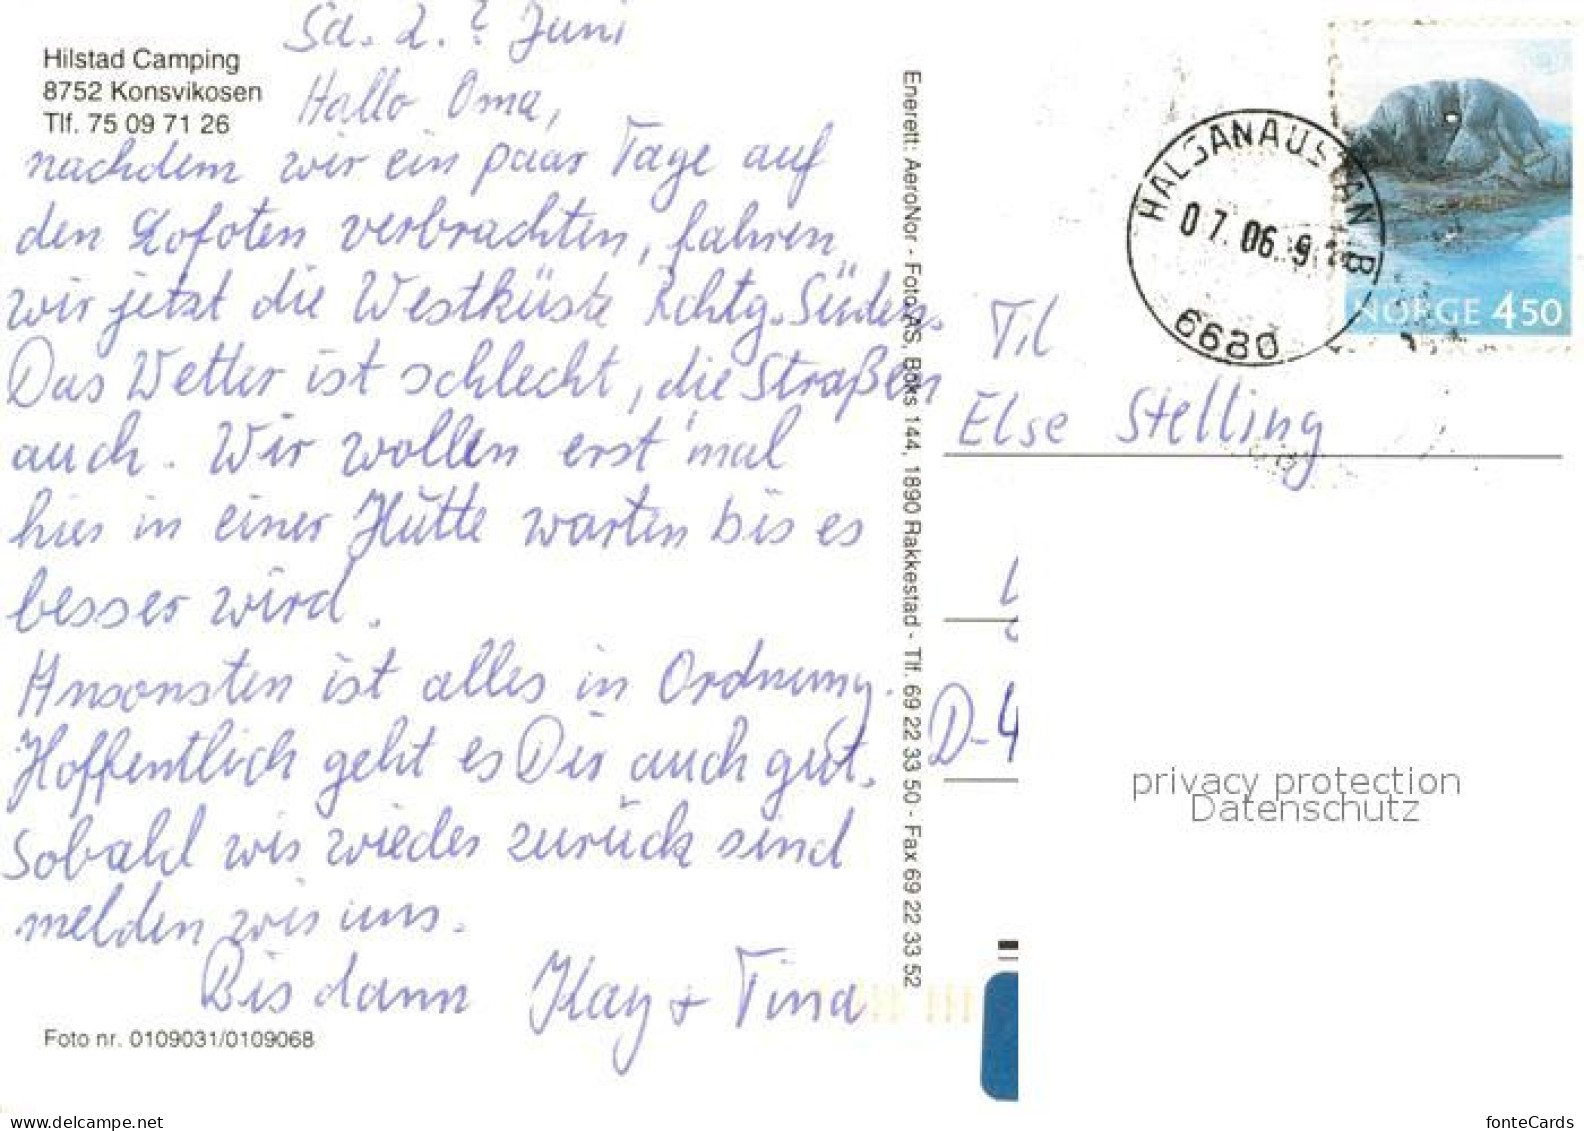 Sa. 2.? Juni
Hilstad Camping
8752 Konsvikosen
Tlf. 75 09 71 26
Hallo Oma,
nachdem wir ein paar Tage auf
den Lofoten verbrachten, fahren
wir jetzt die Westküste Rchtg. Süden.
Das Wetter ist schlecht, die Straßen
auch. Wir wollen erst'mal
hier in einer Hütte warten bis es
besser wird.
Ansonsten ist alles in Ordnung.
Hoffentlich geht es Dir auch gut.
Sobald wir wieder zurück sind
melden wir uns.
Bis dann Kay + Tina
Foto nr. 0109031/0109068
Enerett: AeroNor - Foto AS, Boks 144, 1890 Rakkestad - Tlf. 69 22 33 50 - Fax 69 22 33 52
HALSANAUSTAN B
07.06.9
6680
NORGE 450
Til
Else Stelling
D-4
privacy protection
Datenschutz
www.delcampe.net
fonteCards